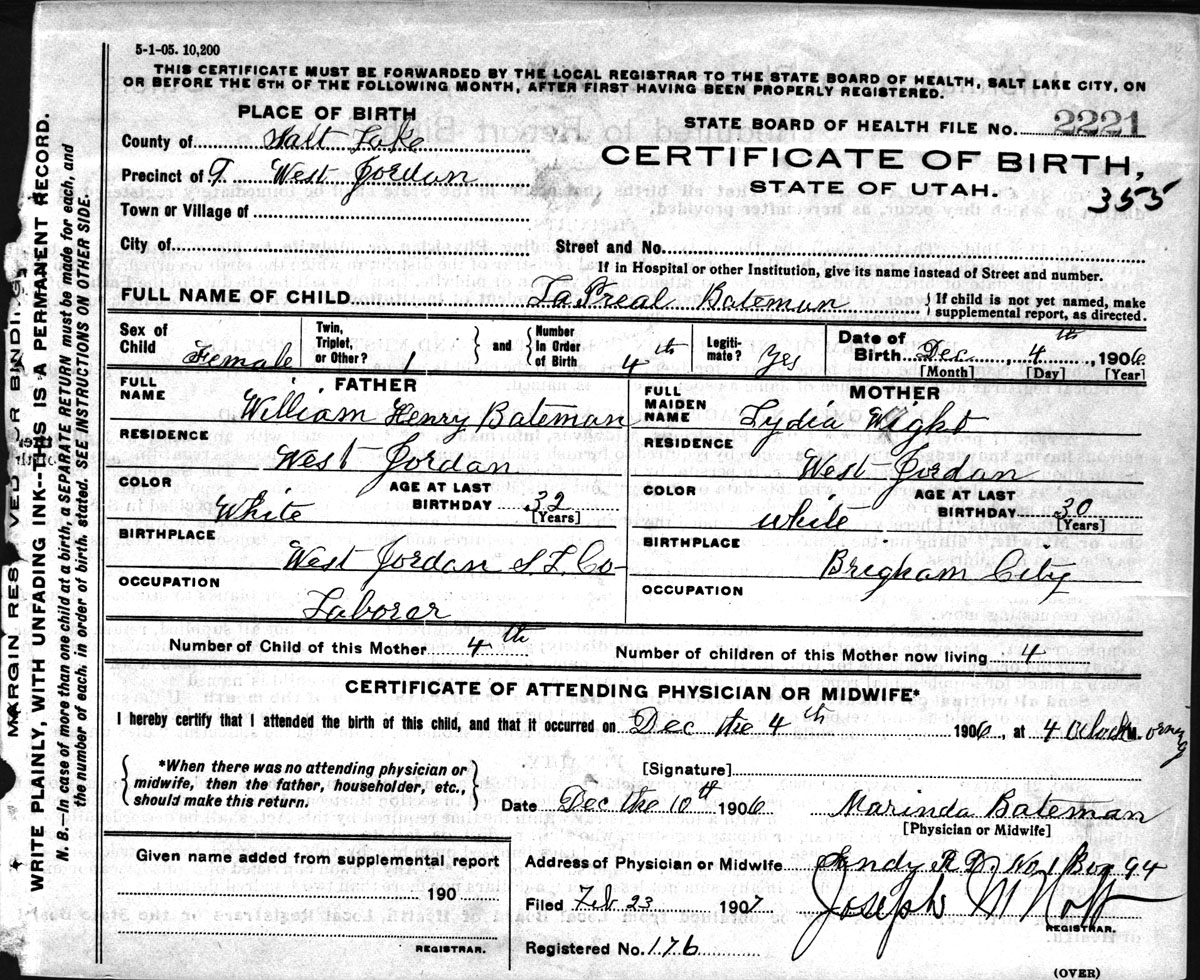 5-1-05. 10,200
THIS CERTIFICATE MUST BE FORWARDED BY THE LOCAL REGISTRAR TO THE STATE BOARD OF HEALTH, SALT LAKE CITY, ON
OR BEFORE THE 5TH OF THE FOLLOWING MONTH, AFTER FIRST HAVING BEEN PROPERLY REGISTERED.
PLACE OF BIRTH
County of Salt Lake
Precinct of West Jordan
Town or Village of
City of
STATE BOARD OF HEALTH FILE NO. 2221
CERTIFICATE OF BIRTH,
STATE OF UTAH.
355
Street and No.
If in Hospital or other Institution, give its name instead of Street and number.
FULL NAME OF CHILD LaPreal Bateman { If child is not yet named, make
supplemental report, as directed.
Sex of
Child Female
Twin,
Triplet,
or Other? 1
} and {
Number
in Order
of Birth 4th
Legiti-
mate? Yes
Date of
Birth Dec, 4th, 1906
[Month] [Day] [Year]
FATHER
FULL
NAME William Henry Bateman
RESIDENCE
West Jordan
COLOR
White
AGE AT LAST
BIRTHDAY 32
[Years]
BIRTHPLACE
West Jordan S. L. Co
OCCUPATION
Laborer
MOTHER
FULL
MAIDEN
NAME Lydia Wight
RESIDENCE
West Jordan
COLOR
white
AGE AT LAST
BIRTHDAY 30
[Years]
BIRTHPLACE
Brigham City
OCCUPATION
Number of Child of this Mother 4th
Number of children of this Mother now living 4
CERTIFICATE OF ATTENDING PHYSICIAN OR MIDWIFE*
I hereby certify that I attended the birth of this child, and that it occurred on Dec the 4th 1906, at 4 Oclock M. orning
{ *When there was no attending physician or
midwife, then the father, householder, etc.,
should make this return. }
[Signature]
Date Dec the 10th 1906 Marinda Bateman
[Physician or Midwife]
Given name added from supplemental report
190
REGISTRAR.
Address of Physician or Midwife Sandy R D No 1 Box 94
Filed Feb 23 1907 Joseph M
REGISTRAR.
Registered No. 176
(OVER)
MARGIN RESERVED FOR BINDING
WRITE PLAINLY, WITH UNFADING INK--THIS IS A PERMANENT RECORD.
N. B.—In case of more than one child at a birth, a SEPARATE RETURN must be made for each, and
the number of each, in order of birth, stated. SEE INSTRUCTIONS ON OTHER SIDE.